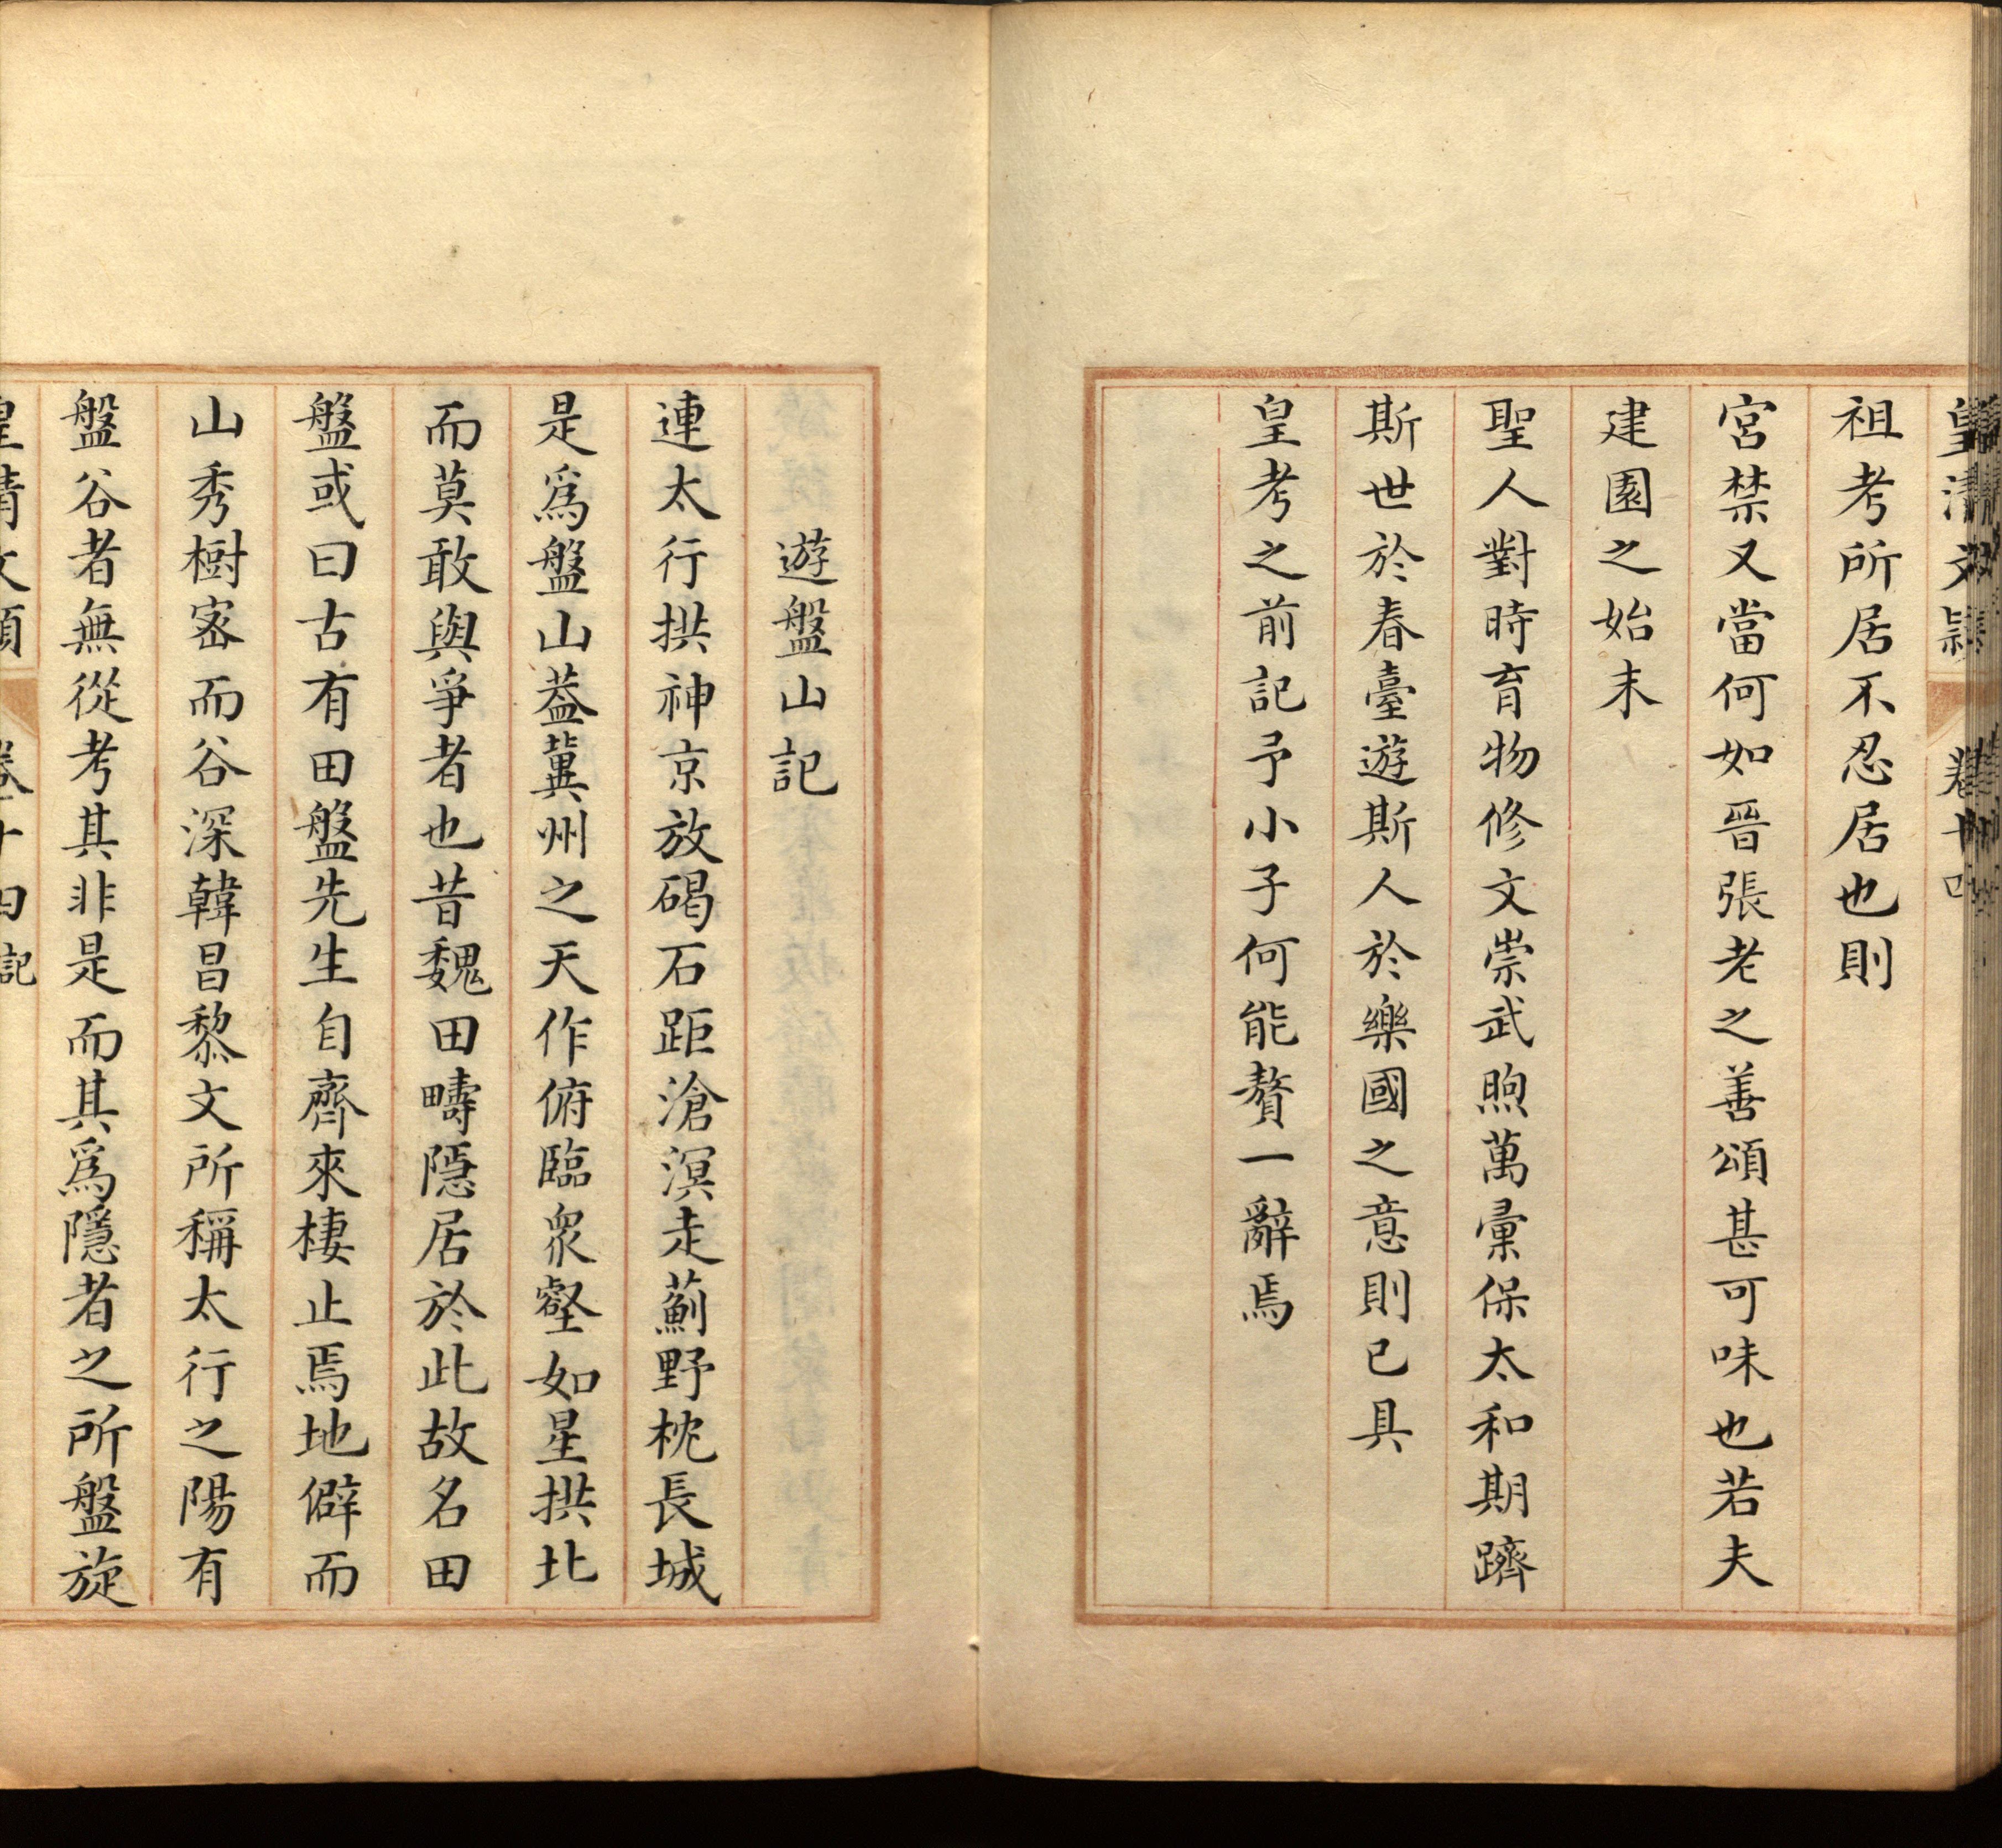 皇清文穎 卷十四
祖考所居不忍居也則
宮禁又當何如晉張老之善頌甚可味也若夫
建園之始末
聖人對時育物修文崇武煦萬彙保太和期躋
斯世於春臺遊斯人於樂國之意則已具
皇考之前記予小子何能贅一辭焉
遊盤山記
連太行拱神京放碣石距滄溟走薊野枕長城
是爲盤山葢冀州之天作俯臨衆壑如星拱北
而莫敢與爭者也昔魏田疇隱居於此故名田
盤或曰古有田盤先生自齊來棲止焉地僻而
山秀樹宻而谷深韓昌黎文所稱太行之陽有
盤谷者無從考其非是而其爲隱者之所盤旋
皇清文穎 卷十四記